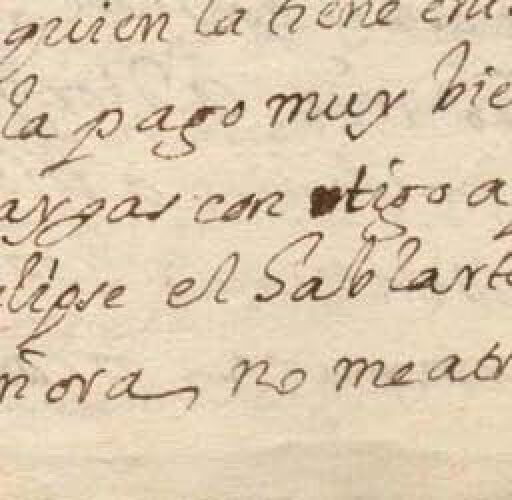 quien la tiene en
la pago muy bie
aygas con tigo a
elipse el Sablarte
ñora, no me atr